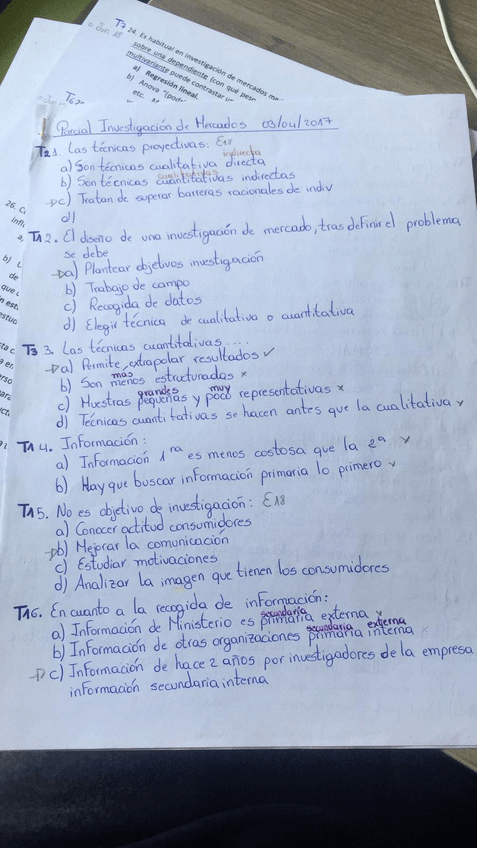 T3 24. Es habitual en investigación de mercados me
sobre una dependiente (con qué peso
multivariante puede contrastar
a) Regresión lineal.
b) Anova
etc.
Parcial Investigación de Mercados 03/04/2017
T2 1. Las técnicas proyectivas: E18
indirecta
a) Son técnicas cualitativa directa
cualitativas
b) Son técnicas cuantitativas indirectas
c) Tratan de superar barreras racionales de indiv
d)
TA 2. El diseño de una investigación de mercado, tras definir el problema
se debe
a) Plantear objetivos investigación
b) Trabajo de campo
c) Recogida de datos
d) Elegir técnica de cualitativa o cuantitativa
T3 3. Las técnicas cuantitativas....
a) Permite extrapolar resultados ✓
más
b) Son menos estructuradas x
grandes muy
c) Muestras pequeñas y poco representativas x
d) Técnicas cuantitativas se hacen antes que la cualitativa x
TA 4. Información:
a) Información 1ra es menos costosa que la 2a x
b) Hay que buscar información primaria lo primero x
TA 5. No es objetivo de investigación: E18
a) Conocer actitud consumidores
b) Mejorar la comunicación
c) Estudiar motivaciones
d) Analizar la imagen que tienen los consumidores
TA 6. En cuanto a la recogida de información:
secundaria
a) Información de Ministerio es primaria externa x
secundaria externa
b) Información de otras organizaciones primaria interna x
c) Información de hace 2 años por investigadores de la empresa
información secundaria interna